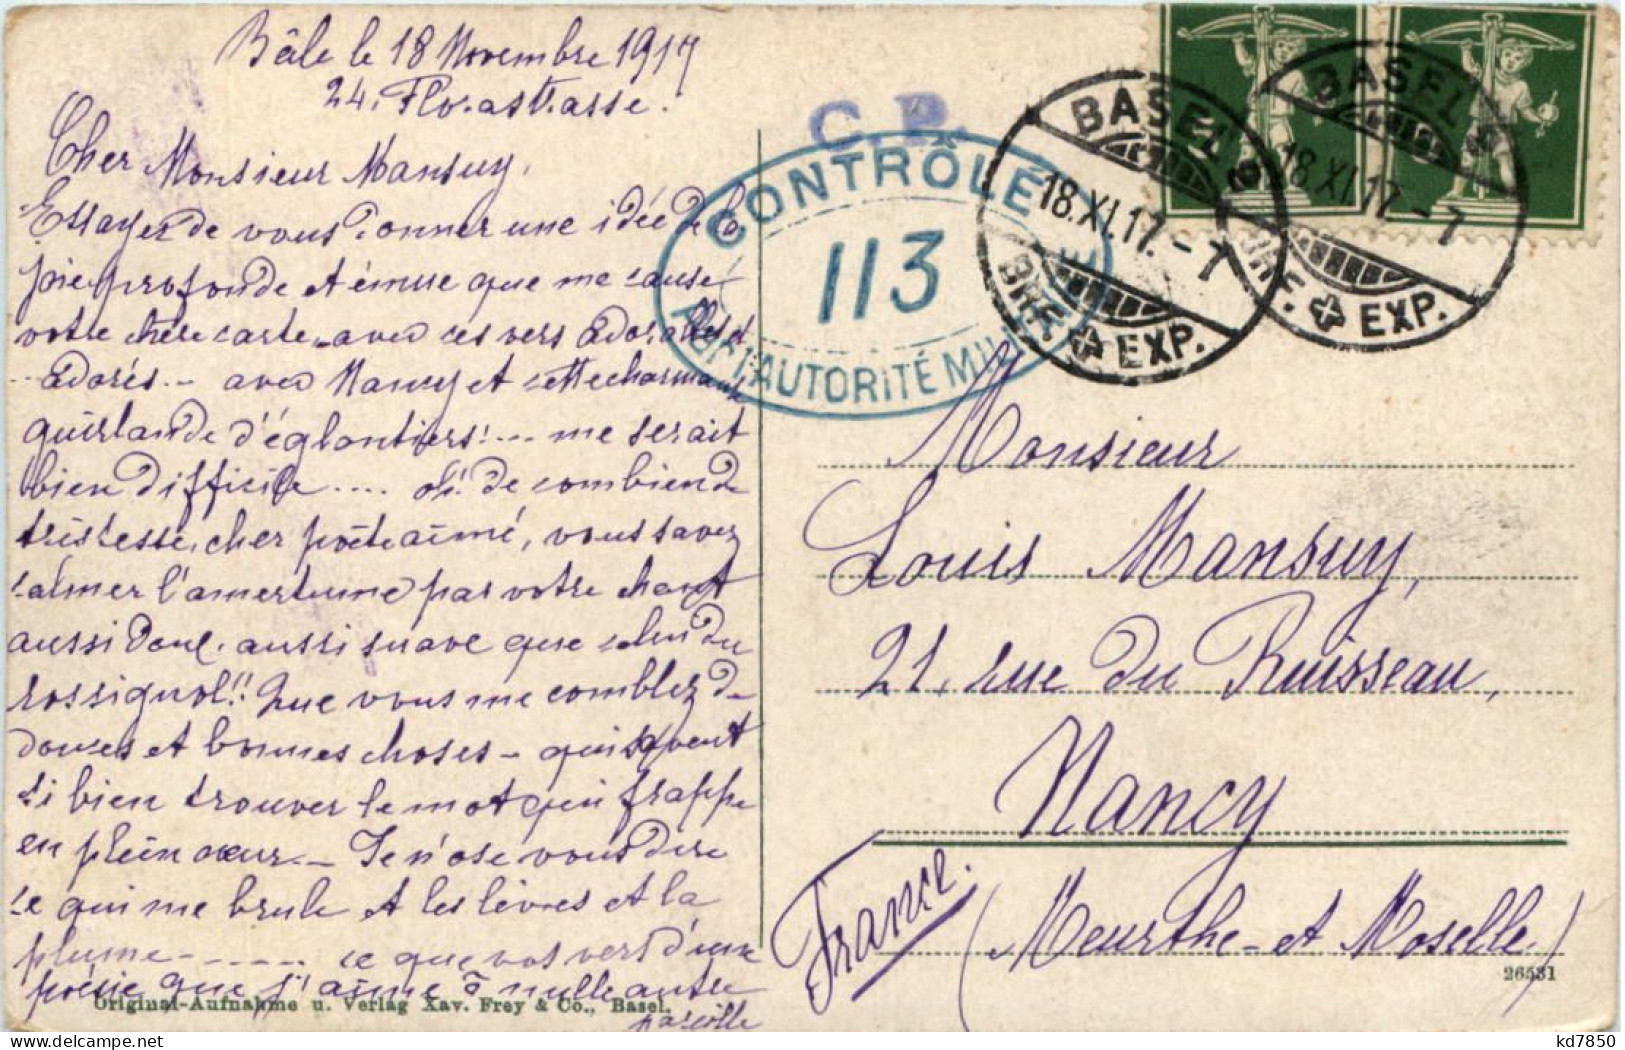 Bâle le 18 Novembre 1917
24. Florastrasse.
Cher Monsieur Mansuy,
Essayer de vous donner une idée de la
joie profonde et émue que me cause
votre chère carte, avec ces vers adorables et
adorés.- avec Nancy et cette charmante
guirlande d'églantiers!... me serait
bien difficile .... oh! de combien de
tristesse, cher poète aimé, vous savez
calmer l'amertume par votre chant
aussi doux, aussi suave que celui du
rossignol!! Que vous me comblez de
douces et bonnes choses - qui savent
si bien trouver le mot qui frappe
en plein coeur.- Je n'ose vous dire
ce qui me brule et les lèvres et la
plume ------ ce que vos vers d'une
poésie que j'aime à nulle autre
pareille
Original-Aufnahme u. Verlag Xav. Frey & Co., Basel.
C. P.
CONTRÔLE
113
PAR L'AUTORITÉ MILITAIRE
BASEL
18.XI.17.-7
BRF. EXP.
BASEL
18.XI.17.-7
BRF. EXP.
Monsieur
Louis Mansuy,
21, rue du Ruisseau,
Nancy
(Meurthe-et Moselle)
France.
26531
kd7850